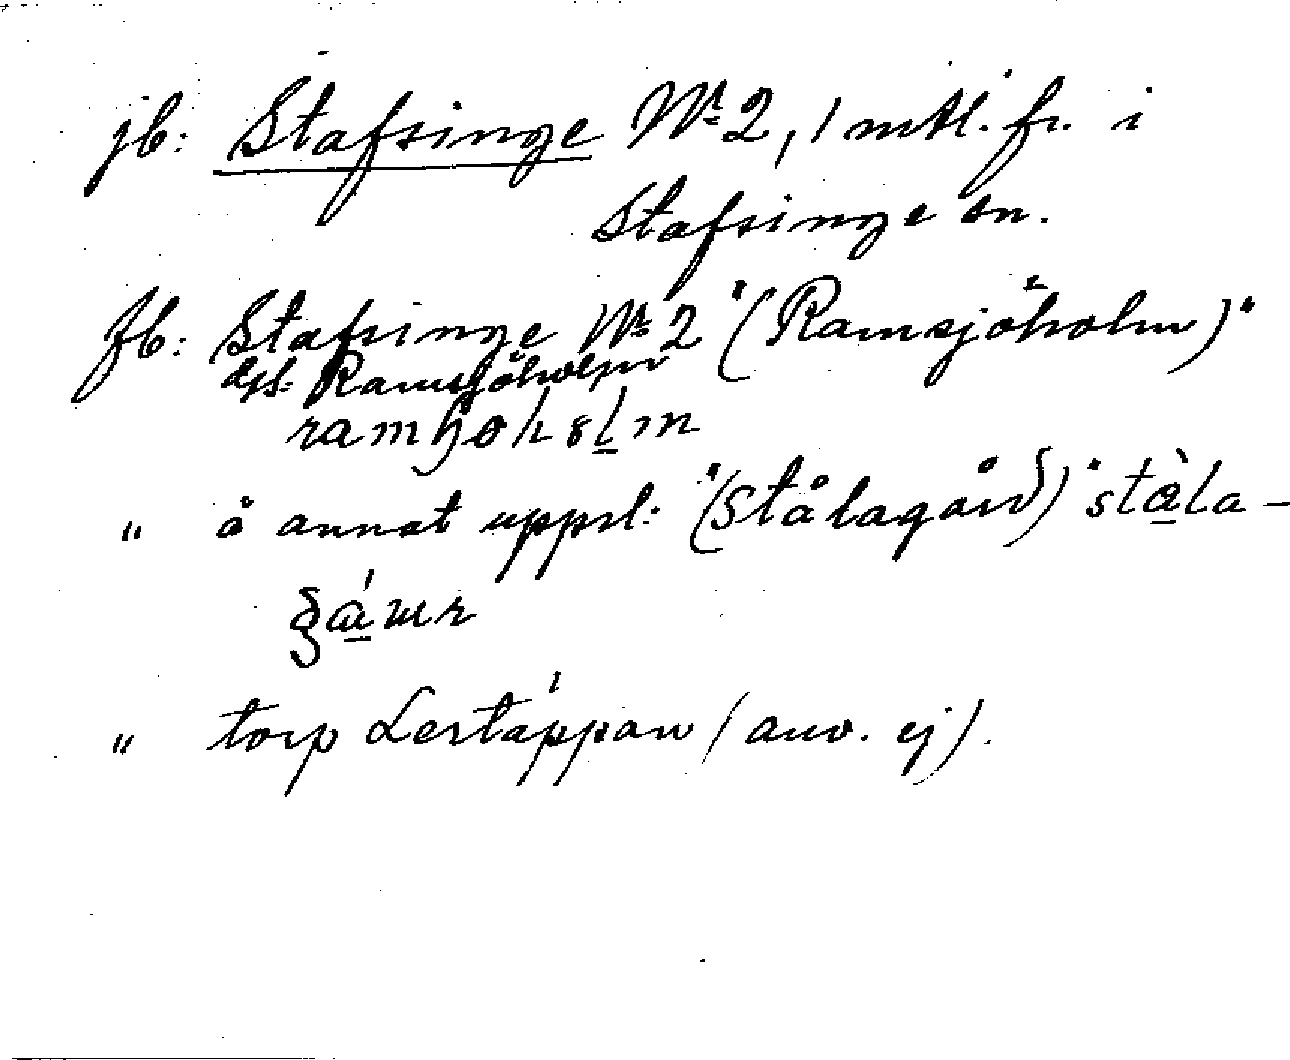 jb: Stafsinge Nr 2, 1 mtl. fr. i
Stafsinge sn.
fb: Stafsinge Nr 2 "(Ramsjöholm)"
Ramsjöholm
" å annat uppsl: "(Stålagård)" stàla-
" torp Lertáppan (anv. ej).